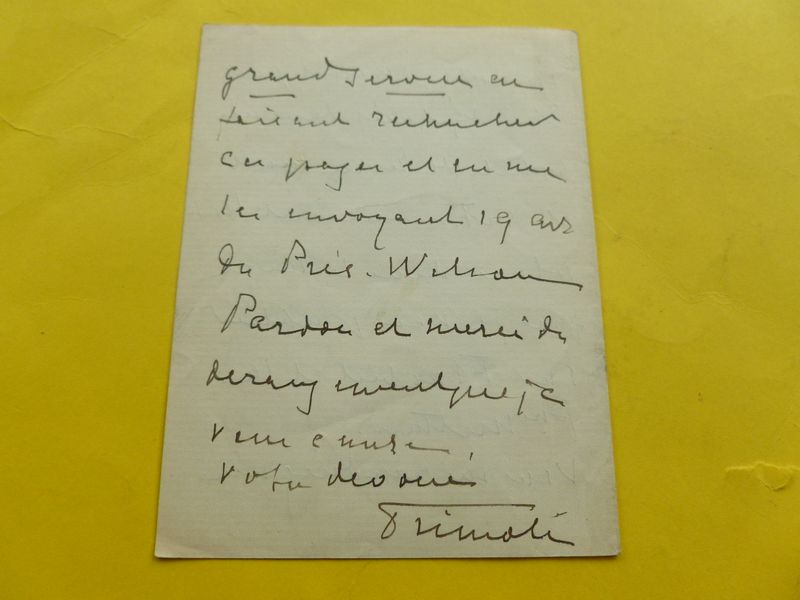 grand service en
faisant rechercher
ces pages et en me
les envoyant 19 av
du Prés. Wilson
Pardon et merci du
derangement que je
vous cause,
Votre devoué
Primoli